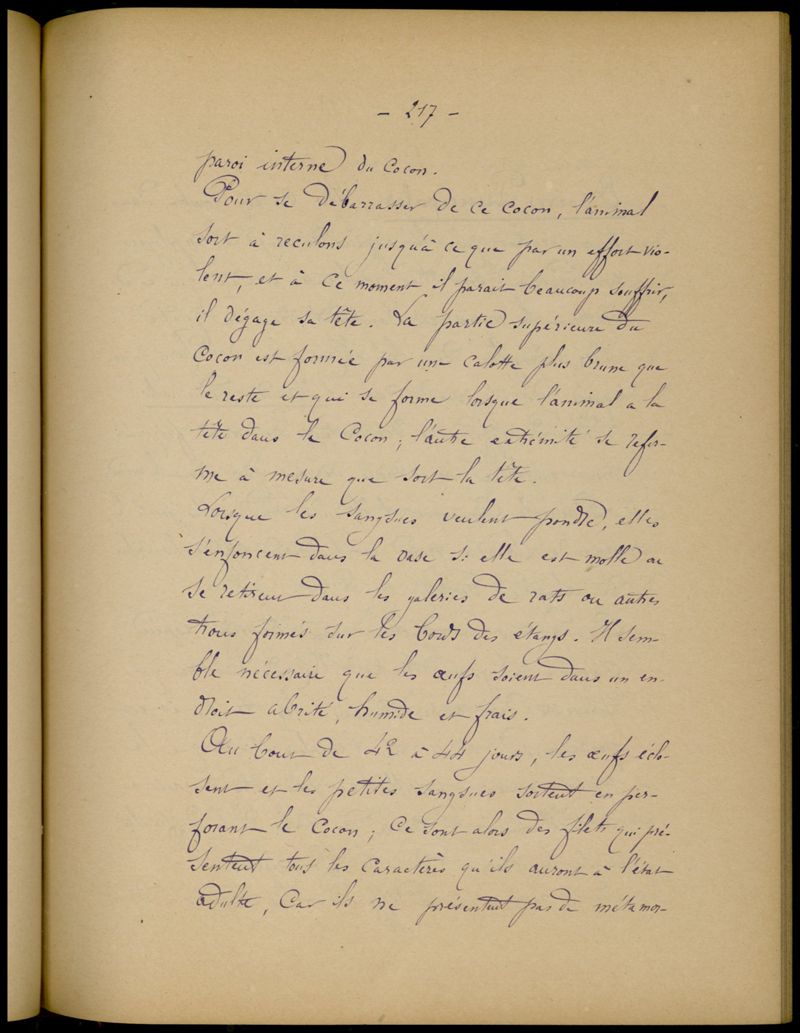 - 217 -
paroi interne du cocon.
Pour se débarrasser de ce cocon, l'animal
sort à reculons jusqu'à ce que par un effort vio-
lent, et à ce moment il parait beaucoup souffrir,
il dégage sa tête. La partie supérieure du
cocon est formée par une calotte plus brune que
le reste et qui se forme lorsque l'animal a la
tête dans le cocon; l'autre extrémité se refer-
me à mesure que sort la tête.
Lorsque les sangsues veulent pondre, elles
s'enfoncent dans la vase si elle est molle ou
se retirent dans les galeries de rats ou autres
trous formés sur les bords des étangs. Il sem-
ble nécessaire que les œufs soient dans un en-
droit abrité, humide et frais.
Au bout de 42 à 44 jours, les œufs éclo-
sent et les petites sangsues sortent en per-
forant le cocon; ce sont alors des filets qui pré-
sentent tous les caractères qu'ils auront à l'état
adulte, car ils ne présentent pas de métamor-